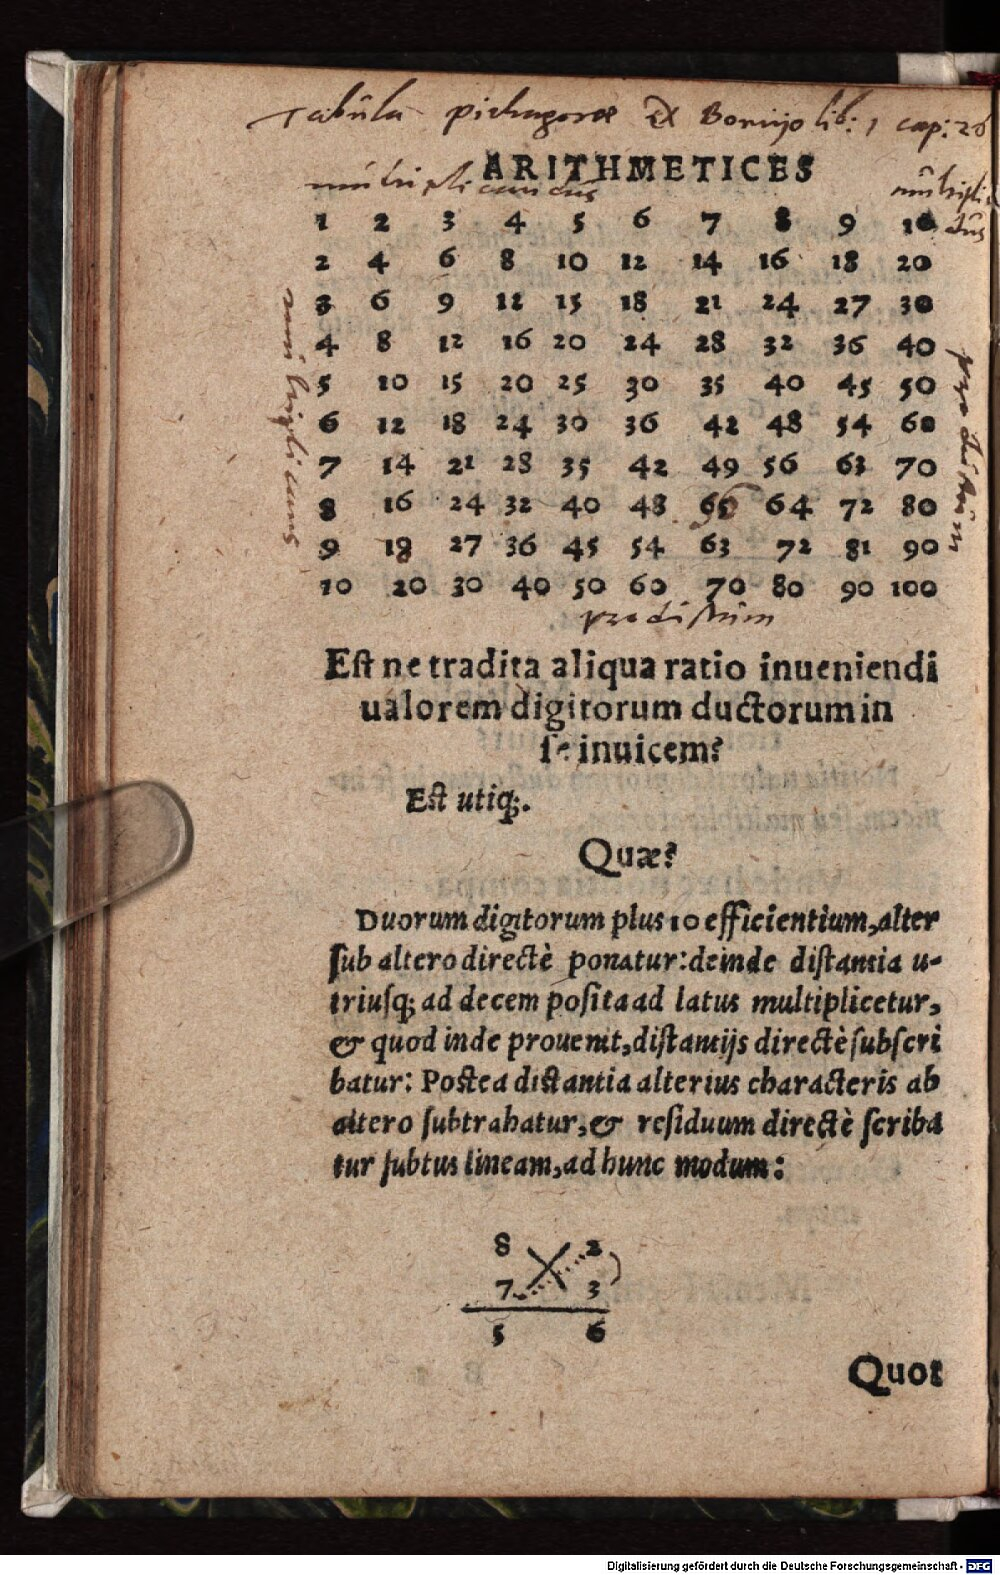 Tabula pithagoræ Ex Boetijo lib: 1 cap: 26
ARITHMETICES
multiplicandus
multipli
dus
1 2 3 4 5 6 7 8 9 10
2 4 6 8 10 12 14 16 18 20
3 6 9 12 15 18 21 24 27 30
4 8 12 16 20 24 28 32 36 40
5 10 15 20 25 30 35 40 45 50
6 12 18 24 30 36 42 48 54 60
7 14 21 28 35 42 49 56 63 70
8 16 24 32 40 48 65 64 72 80
9 18 27 36 45 54 63 72 81 90
10 20 30 40 50 60 70 80 90 100
multiplicans
productum
productum
Eſt ne tradita aliqua ratio inueniendi
ualorem digitorum ductorum in
ſe inuicem?
Eſt utiq;.
Quæ?
Duorum digitorum plus 10 efficientium, alter
ſub altero directè ponatur: deinde diſtantia u-
triuſq; ad decem poſita ad latus multiplicetur,
& quod inde prouenit, diſtantijs directè ſubſcri
batur: Poſtea diſtantia alterius characteris ab
altero ſubtrahatur, & reſiduum directè ſcriba
tur ſubtus lineam, ad hunc modum:
8 2
7 3
5 6
Quot
Digitalisierung gefördert durch die Deutsche Forschungsgemeinschaft - DFG